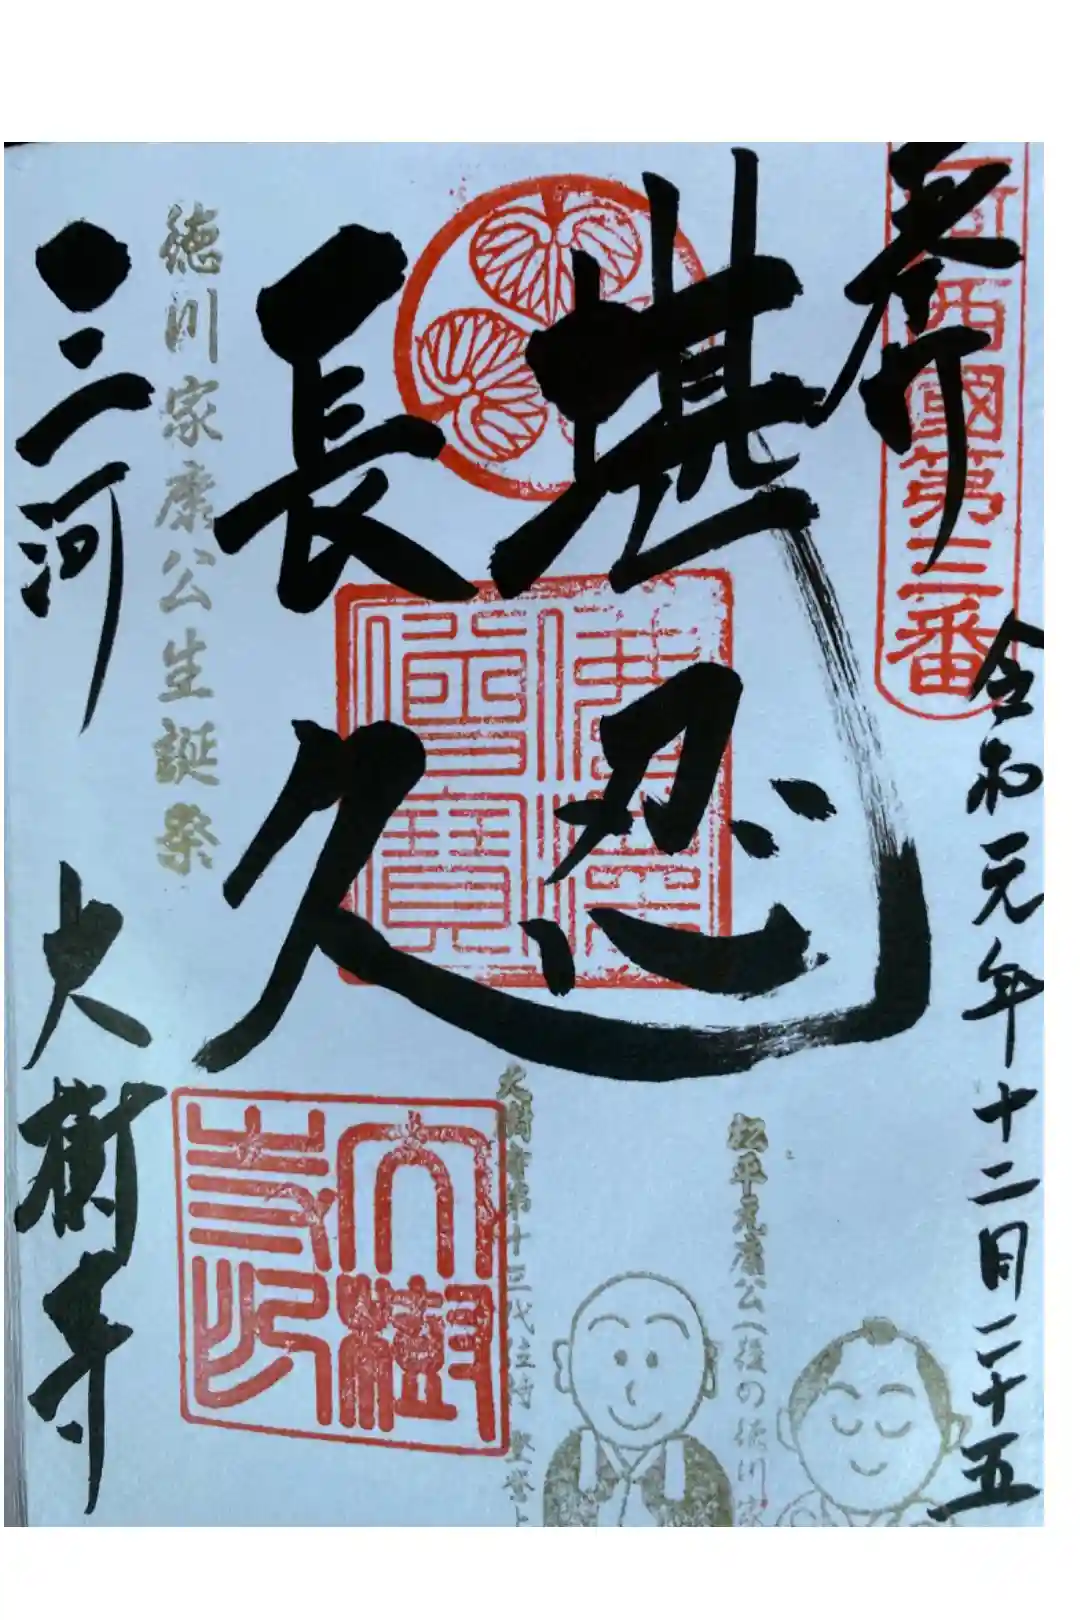 奉拝
河西國第三番
令和元年十二月二十五
堪忍
長久
佛法
僧寶
松平元康公(後の徳川家
大樹寺第十三代住持 登誉上
大樹
寺印
徳川家康公生誕祭
三河
大樹寺